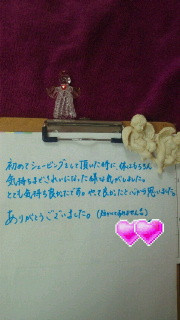 初めてシェービングをして頂いた時に、体はもちろん
気持ちまできれいになった様な気がしました。
とても気持ち良かったです。やって良かったと心から思いました。
ありがとうございました。